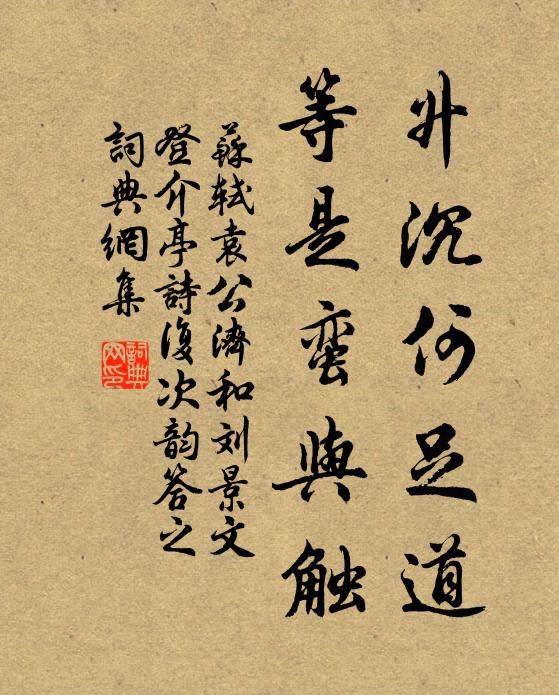 升沉何足道
等是蛮與触
蘇軾袁公濟和刘景文
登介亭詩復次韵答之
詞典網集
詞典网印